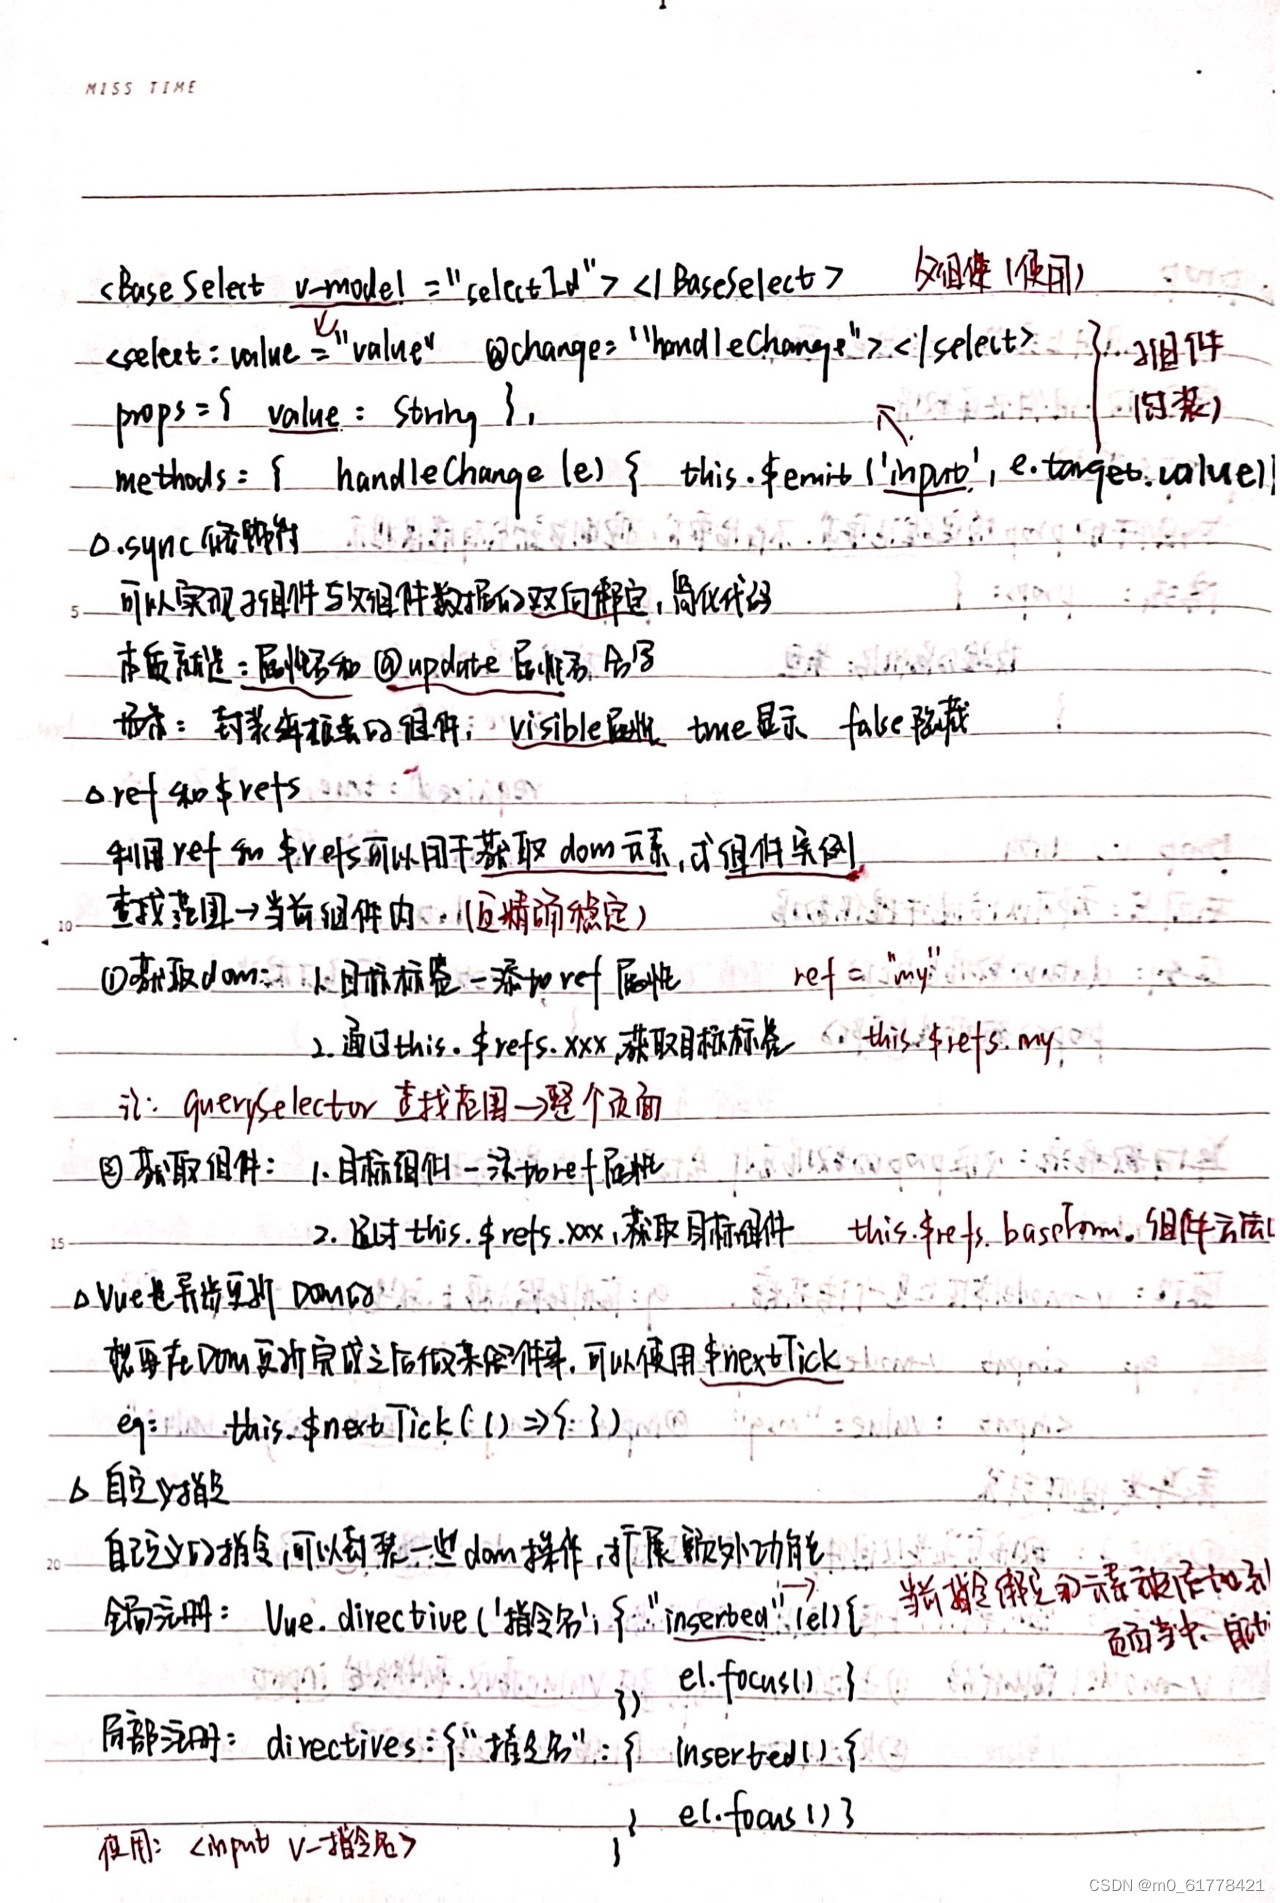 MISS TIME
<BaseSelect v-model="selectId"></BaseSelect> 父组件(使用)
<select :value="value" @change="handleChange"></select> 子组件
props={ value: String }, (封装)
methods={ handleChange (e) { this.$emit ('input', e.target.value)
△.sync修饰符
5
可以实现子组件与父组件数据的双向绑定,简化代码
本质就是:属性名和@update属性名 合写
场景:封装弹框类的组件: visible属性 true显示 false隐藏
△ref 和 $refs
利用 ref 和 $refs可以用于获取 dom 元素,或组件实例
10
查找范围→当前组件内.(更精确稳定)
①获取dom: 1.目标标签—添加ref 属性 ref = "my"
2.通过this.$refs.xxx,获取目标标签 this.$refs.my
注: querySelector 查找范围→整个页面
②获取组件: 1.目标组件—添加ref属性
15
2.通过this.$refs.xxx,获取目标组件 this.$refs.baseForm.组件方法(
△Vue是异步更新 Dom的
想要在Dom更新完成之后做某件事,可以使用$nextTick
eg: this.$nextTick(()=>{ })
△ 自定义指令
20
自己定义的指令,可以封装一些dom操作,扩展额外功能
全局注册: Vue.directive('指令名', { "inserted" (el){
当前指令绑定的元素被添加到
页面当中,自动
el.focus() }
})
局部注册: directives:{"指令名": { inserted() {
el.focus() }
}
}
使用: <input v-指令名>
CSDN @m0_61778421